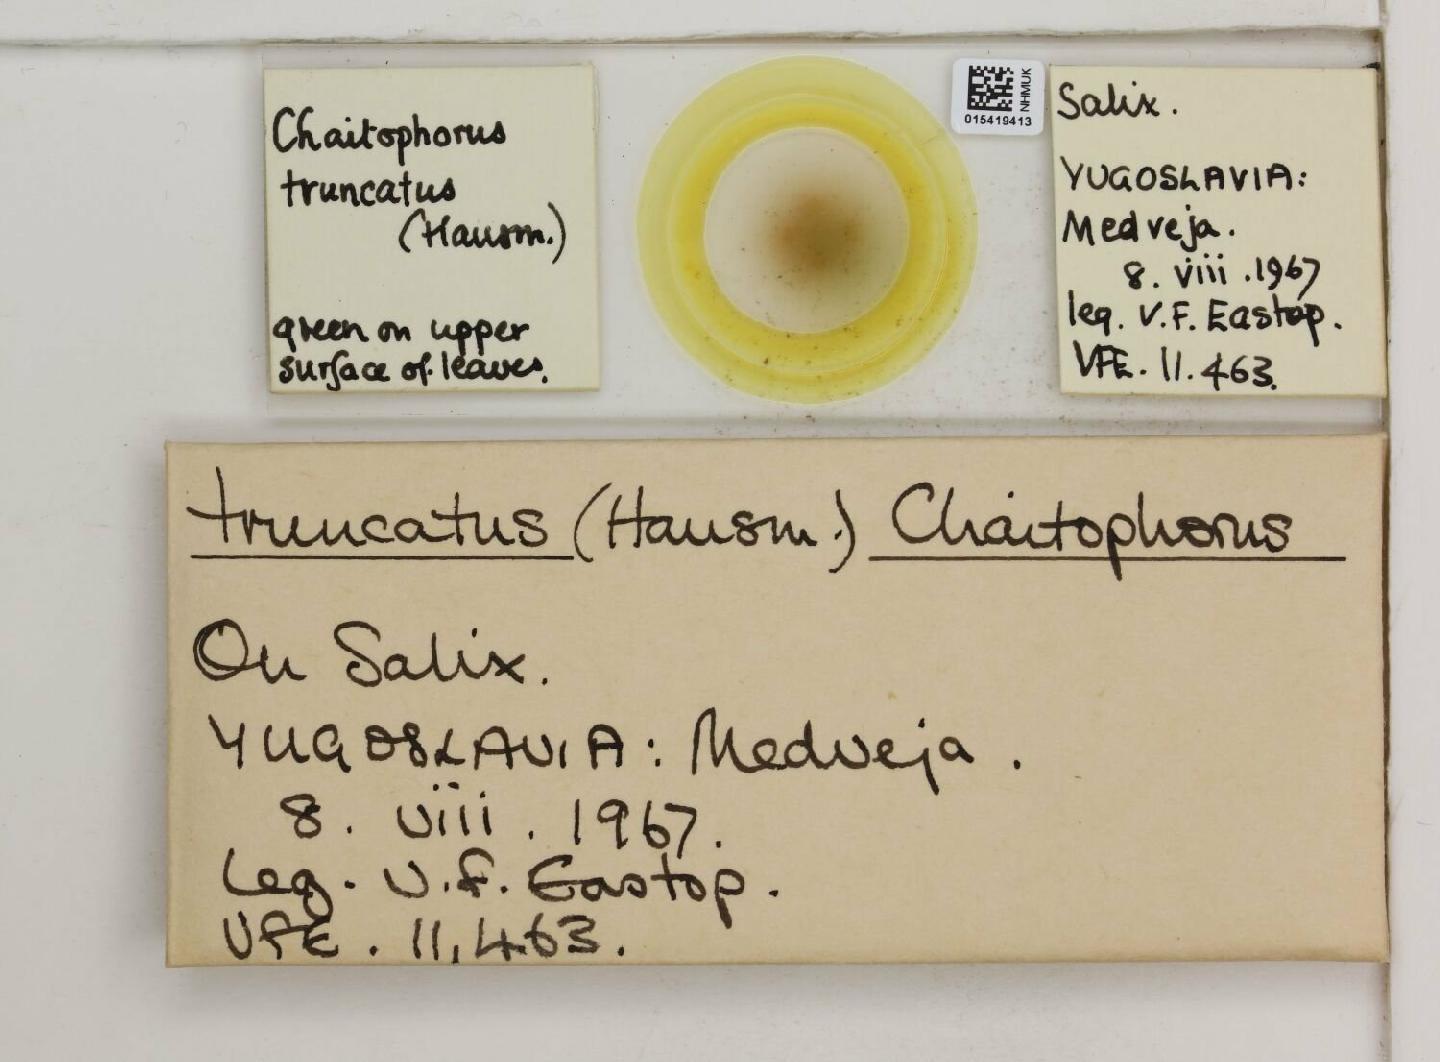 Chaitophorus
truncatus
(Hausm.)
green on upper
surface of leaves.
NHMUK
015419413
Salix.
YUGOSLAVIA:
Medveja.
8. viii .1967
leg. V.F. Eastop.
VFE. 11.463.
truncatus (Hausm.) Chaitophorus
On Salix.
YUGOSLAVIA: Medveja.
8. viii. 1967.
Leg. V.F. Eastop.
VFE. 11,463.